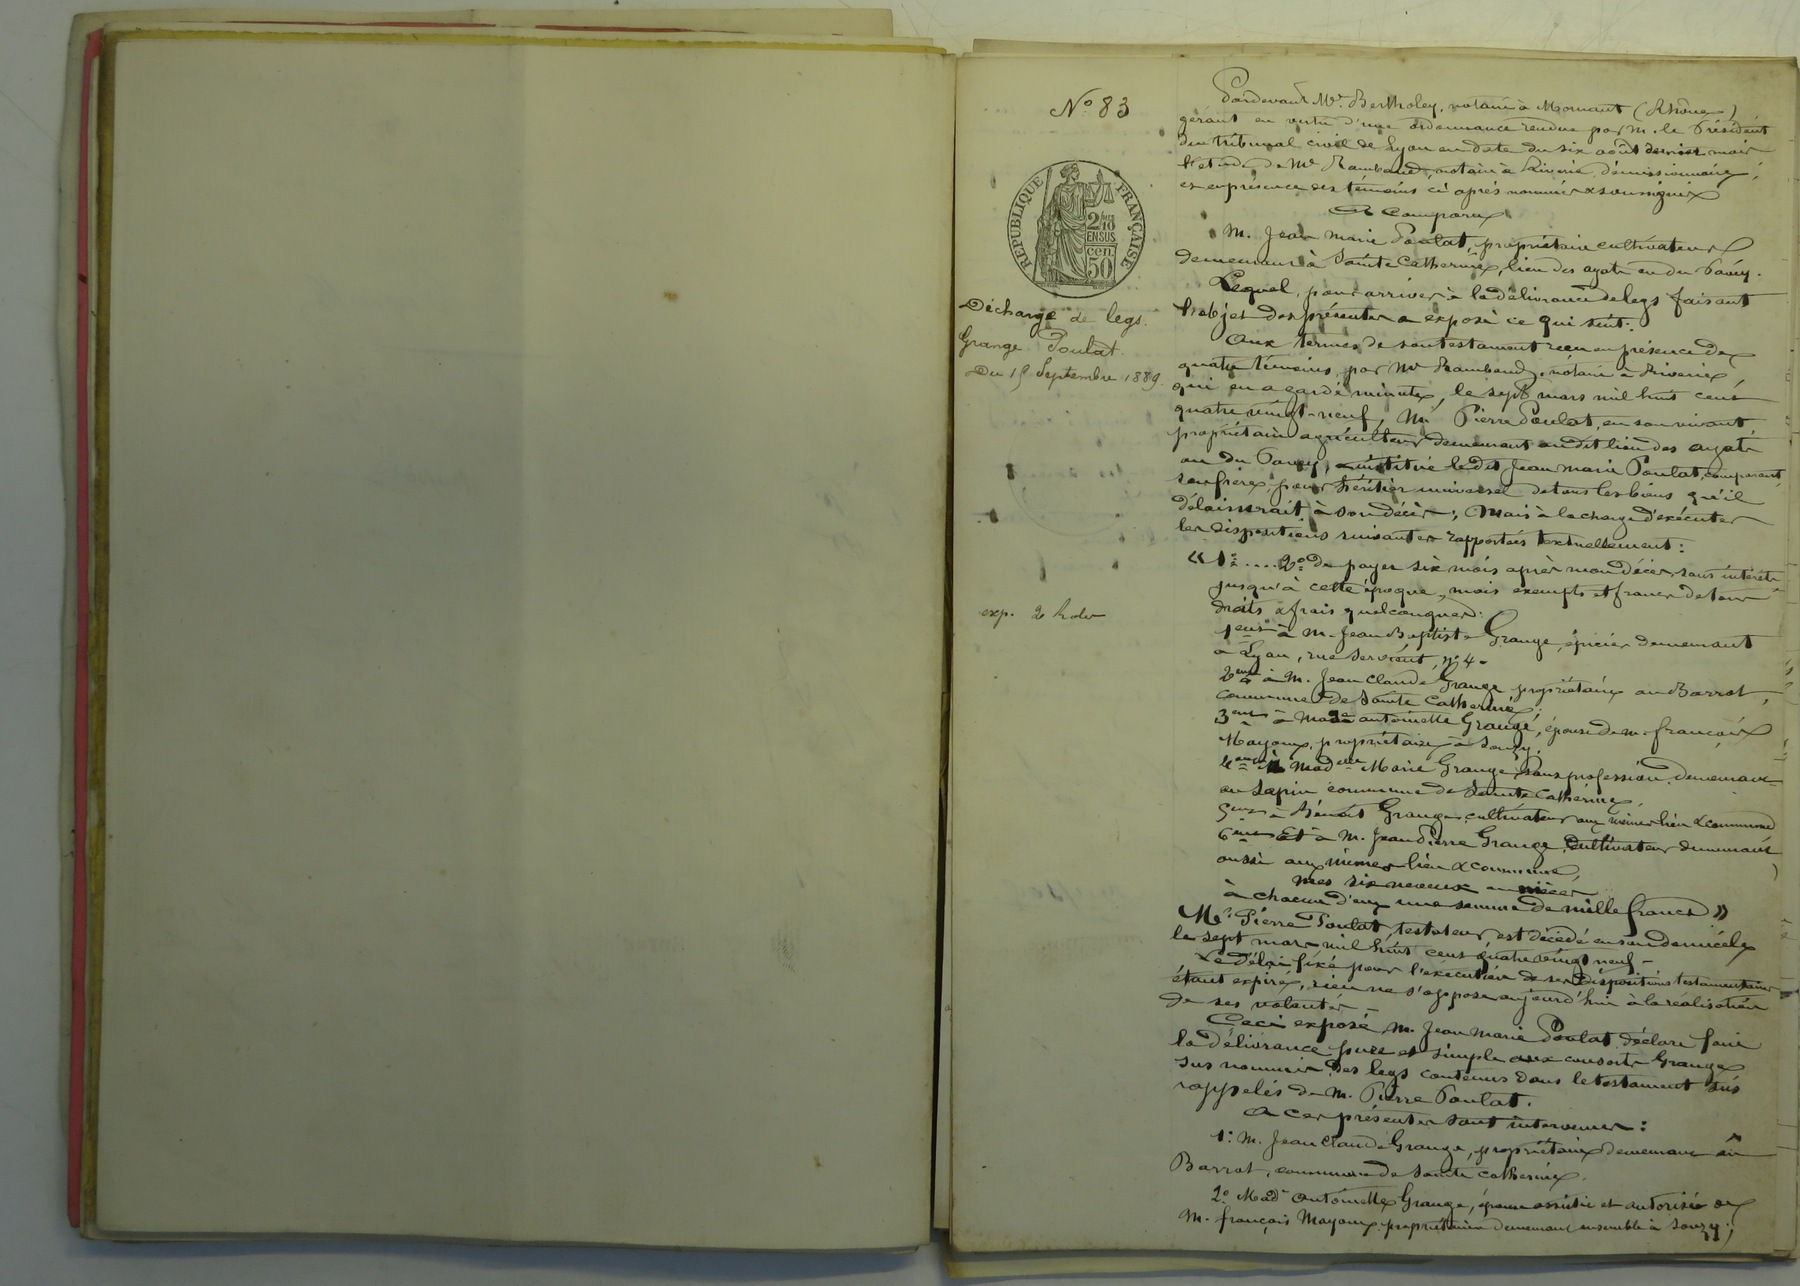 N° 83
RÉPUBLIQUE FRANÇAISE
2/10
EN SUS
50 cen
Décharge de legs.
Grange Poulat.
Du 15 Septembre 1889.
exp. 2 roles
Pardevant Me Bertholey, notaire à Mornant (Rhône)
gérant en vertu d'une ordonnance rendue par M. le Président
du tribunal civil de Lyon en date du six août dernier
l'etude de Me Rambaud, notaire à Riverie, démissionnaire,
et en présence des témoins ci après nommés & soussignés
A Comparu
M. Jean Marie Poulat, propriétaire cultivateur
demeurant à Sainte Catherine, lieu des ayats ou du Pavey.
Lequel, pour arriver à la délivrance de legs faisant
l'objet des présentes a exposé ce qui suit:
Aux termes de son testament reçu en présence de
quatre témoins, par Me Rambaud, notaire à Riverie,
qui en a gardé minute, le sept mars mil huit cent
quatre vingt-neuf, Mr Pierre Poulat, en son vivant,
propriétaire agriculteur demeurant au dit lieu des ayats
ou du Pavey, a institué le dit Jean Marie Poulat, comparant,
son frère, pour héritier universel de tous les biens qu'il
délaisserait à son décès; Mais à la charge d'exécuter
les dispositions suivantes rapportées textuellement:
« 1° .... 2° de payer six mois après mon décès, sans intérêts
jusqu'à cette époque, mais exempts et francs de tous
droits & frais quelconques:
1ent à M. Jean Baptiste Grange, épicier demeurant
à Lyon, rue Servient, n° 4.
2ent à M. Jean Claude Grange propriétaire au Barrot,
commune de Sainte Catherine;
3ent à Made antoinette Grange, épouse de M. françois
Mayoux, propriétaire à Souzy;
4ent à Madelle Marie Grange, sans profession, demeurant
au Sapin commune de Sainte Catherine,
5ent à Benoît Grange, cultivateur aux mêmes lieu & commune
6ent Et à M. Jean Pierre Grange, cultivateur demeurant
aussi aux mêmes lieu & commune,
mes six neveux ou nièces
à chacun d'eux une somme de mille francs »
Mr Pierre Poulat, testateur, est décédé en son domicile
le sept mars mil huit cent quatre vingt neuf.
Le délai fixé pour l'exécution de ses dispositions testamentaires
étant expiré, rien ne s'oppose aujourd'hui à la réalisation
de ses volontés.
Ceci exposé, M. Jean Marie Poulat déclare faire
la délivrance pure et simple aux consorts Grange
sus nommés des legs contenus dans le testament sus
rappelés de M. Pierre Poulat.
A ces présentes sont intervenus:
1° M. Jean Claude Grange, propriétaire demeurant au
Barrot, commune de Sainte Catherine.
2° Made antoinette Grange, épouse assistée et autorisée de
M. françois Mayoux, propriétaire demeurant ensemble à Souzy;